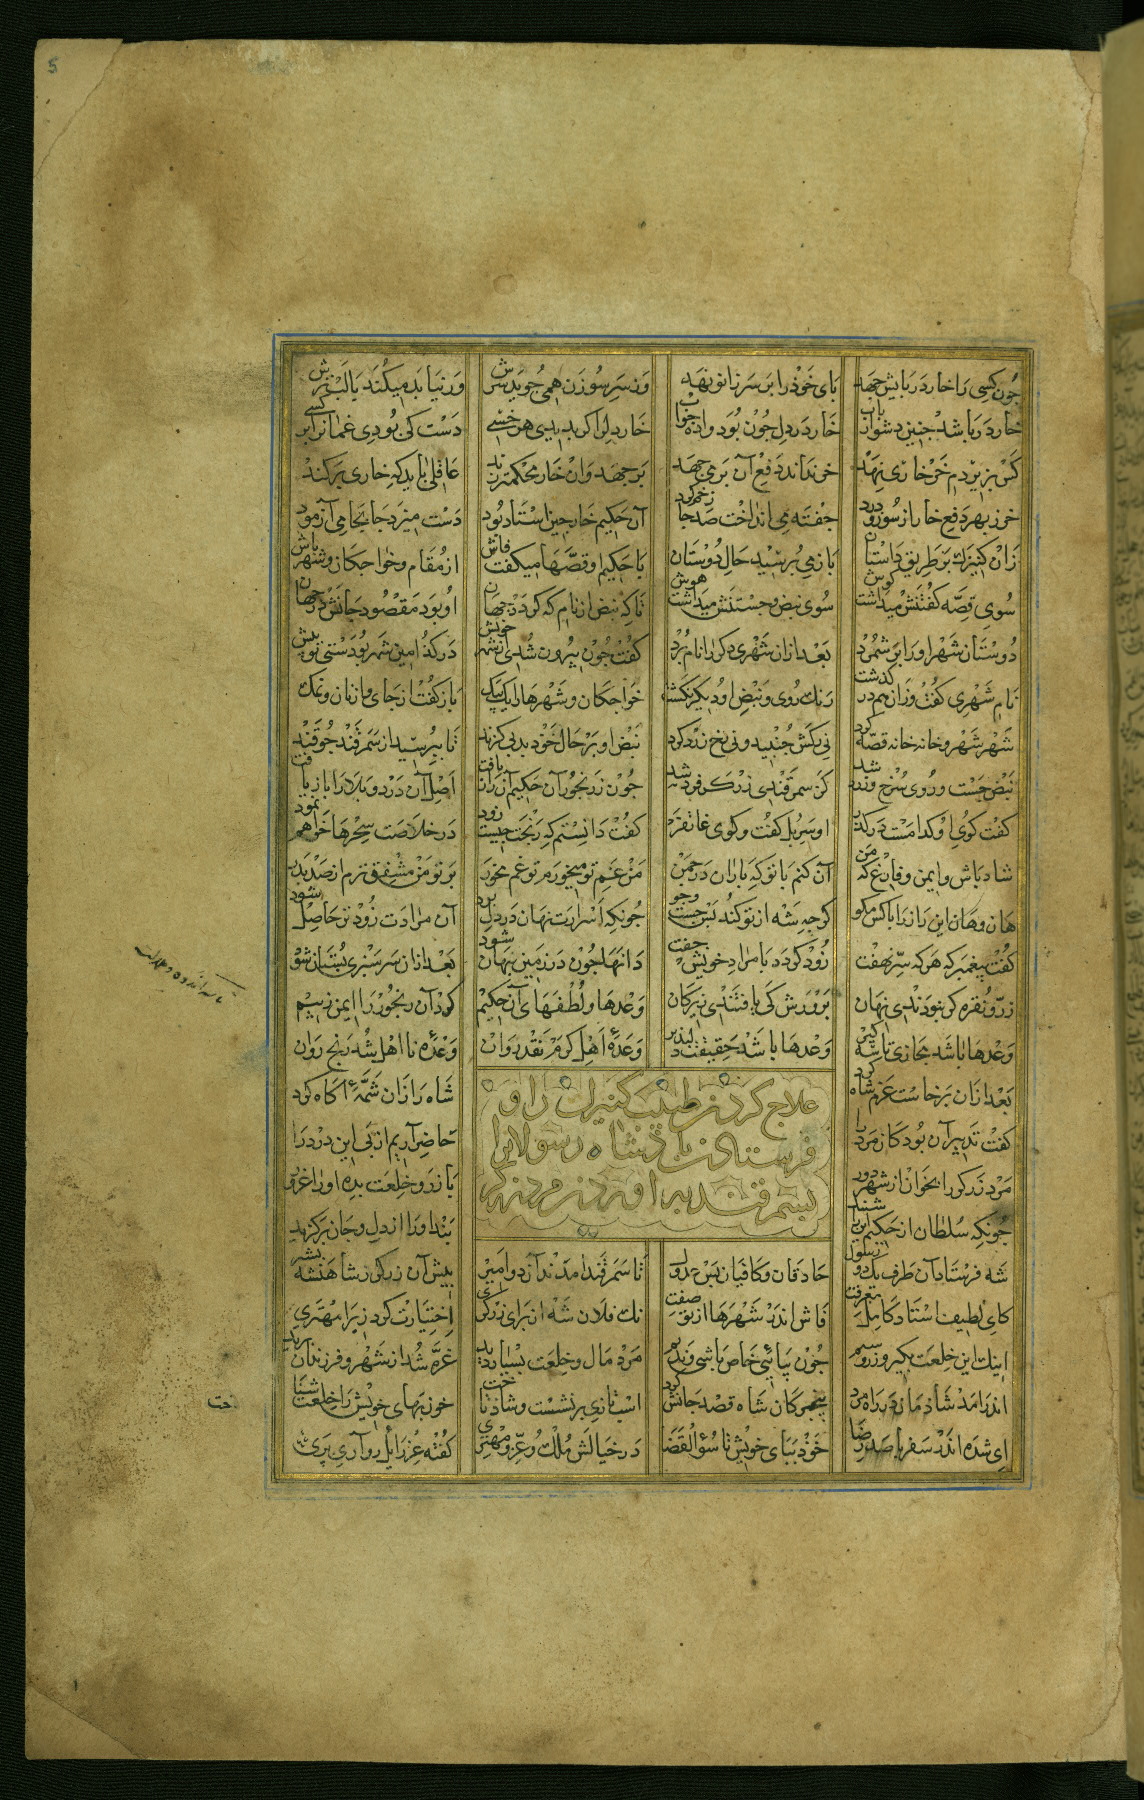 5
چون کسی را خار در پایش جهد پای خود را بر سر زانو نهد وز سر سوزن همی جوید سرش ور نیابد میکند با لب ترش
خار در پا شد چنین دشوار یاب خار در دل چون بود واده جواب خار دل را گر بدیدی هر خسی دست کی بودی غمان را بر کسی
کس بزیر دم خر خاری نهد خر نداند دفع آن بر می جهد بر جهد وان خار محکمتر زند عاقلی باید که خاری بر کند
خر ز بهر دفع خار از سوز و درد جفته می انداخت صد جا زخم کرد آن حکیم خارچین استاد بود دست میزد جا بجا می آزمود
زان کنیزک بر طریق داستان باز می پرسید حال دوستان با حکیم او قصها میگفت فاش از مقام و خواجگان و شهر باش
سوی قصه گفتنش میداشت گوش سوی نبض و جستنش میداشت هوش تا که نبض از نام که گردد جهان او بود مقصود جانش در جهان
دوستان شهر او را بر شمرد بعد ازان شهری دگر را نام برد گفت چون بیرون شدی از شهر خویش در کدامین شهر بودستی تو پیش
نام شهری گفت وزان هم در گذشت رنک روی و نبض او دیگر نگشت خواجگان و شهرها را یک بیک باز گفت از جای و از نان و نمک
شهر شهر و خانه خانه قصه کرد نی رگش جنبید و نی رخ زرد کرد نبض او بر حال خود بد بی گزند تا بپرسید از سمرقند چو قند
نبض جست و روی سرخ و زرد شد کز سمرقندی زرگر فرد شد چون ز رنجور آن حکیم آن راز یافت اصل آن درد و بلا را باز یافت
گفت کوی او کدامست در گذر او سر پل گفت و کوی غاتفر گفت دانستم که رنجت چیست زود در خلاصت سحرها خواهم نمود
شاد باش و ایمن و فارغ که من آن کنم با تو که باران در چمن من غم تو میخورم تو غم مخور بر تو من مشفق ترم از صد پدر
هان و هان این راز را با کس مگو گرچه شه از تو کند بس جست و جو چونکه اسرارت نهان در دل بود آن مرادت زودتر حاصل شود
گفت پیغمبر که هر که سر نهفت زود گردد با مراد خویش جفت دانها چون در زمین پنهان شود بعد ازان سرسبزی بستان شود
زر و نقره گر نبودندی نهان پرورش کی یافتندی زیر کان وعدها و لطفهای آن حکیم کرد آن رنجور را ایمن ز بیم
وعدها باشد مجازی تاسه گیر وعدها باشد حقیقت دلپذیر وعدۀ اهل کرم نقد روان وعدۀ نا اهل شد رنج روان
بعد ازان برخاست عزم شاه کرد شاه را زان شمۀ آگاه کرد
گفت تدبیر آن بود کان مرد را حاضر آریم از پی این درد را
مرد زرگر را بخوان از شهر دور با زر و خلعت بده او را غرور
چونکه سلطان از حکیم این را شنید پند او را از دل و جان بر گزید
علاج کردن طبیب کنیزک را و
فرستادن پادشاه رسولان را
بسمرقند به آوردن مرد زرگر
شه فرستاد آن طرف یک دو رسول حاذقان و کافیان بس عدول تا سمرقند آمدند آن دو امیر پیش آن زرگر ز شاهنشه بشیر
کای لطیف استاد کامل معرفت فاش اندر شهرها از تو صفت نک فلان شه از برای زرگری اختیارت کرد زیرا مهتری
اینک این خلعت بگیر و زر و سیم چون بیائی خاص باشی و ندیم مرد مال و خلعت بسیار دید غره شد از شهر و فرزندان برید
اندر آمد شادمان در راه مرد بیخبر کان شاه قصد جانش کرد اسب تازی برنشست و شاد تاخت خونبهای خویش را خلعت شناخت
ای شده اندر سفر با صد رضا خود بپای خویش تا سوء القضا در خیالش ملک و عز و مهتری گفته عزرائیل رو آری بری